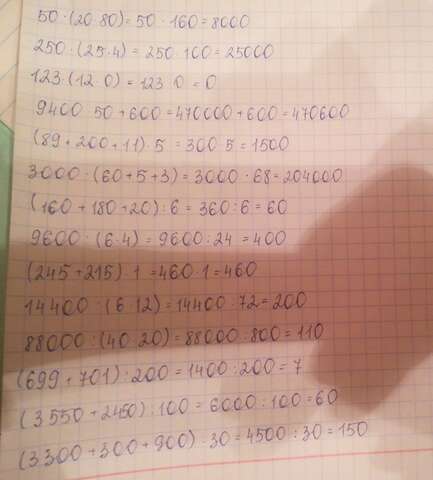 50·(20·80)=50·160=8000
250·(25·4)=250·100=25000
123·(12·0)=123·0=0
9400·50+600=470000+600=470600
(89+200+11)·5=300·5=1500
3000·(60+5+3)=3000·68=204000
(160+180+20):6=360:6=60
9600:(6·4)=9600:24=400
(245+215)·1=460·1=460
14400:(6·12)=14400:72=200
88000:(40·20)=88000:800=110
(699+701):200=1400:200=7
(3550+2450):100=6000:100=60
(3300+300+900):30=4500:30=150